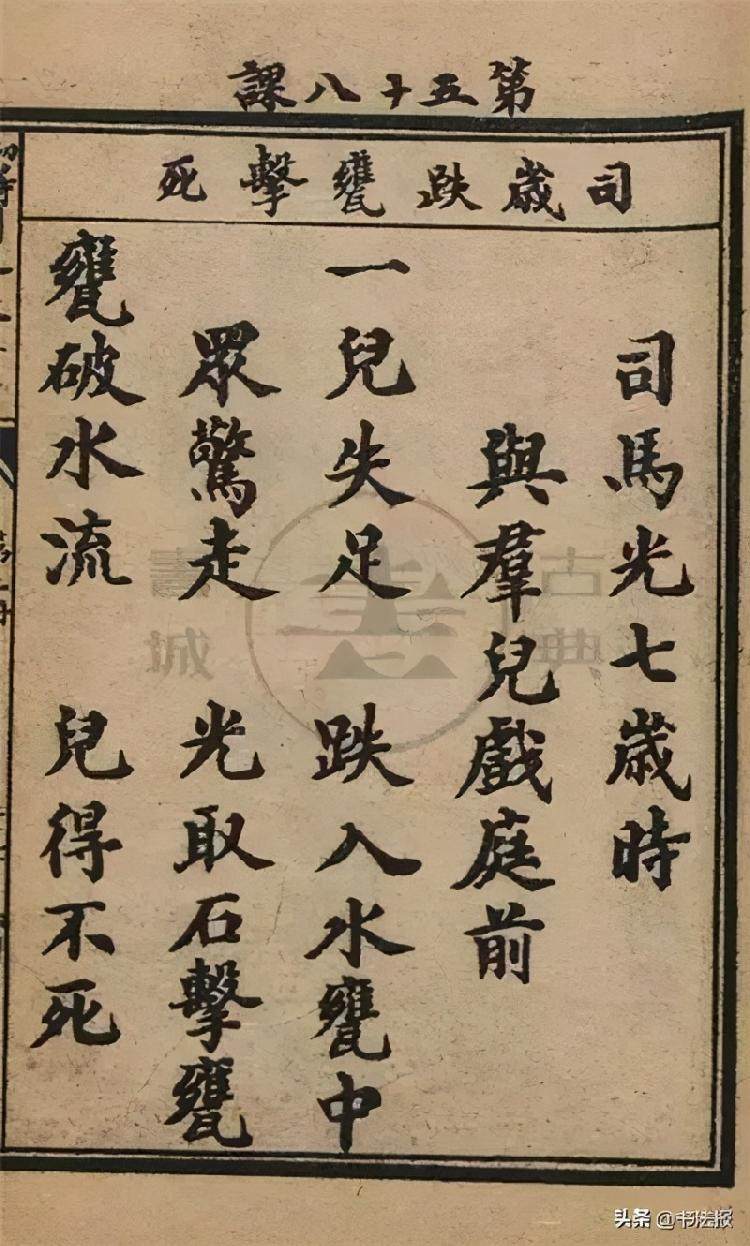 第五十八課
司歲跌甕擊死
司馬光七歲時
與羣兒戲庭前
一兒失足 跌入水甕中
眾驚走 光取石擊甕
甕破水流 兒得不死
古典
書城
头条 @书法报